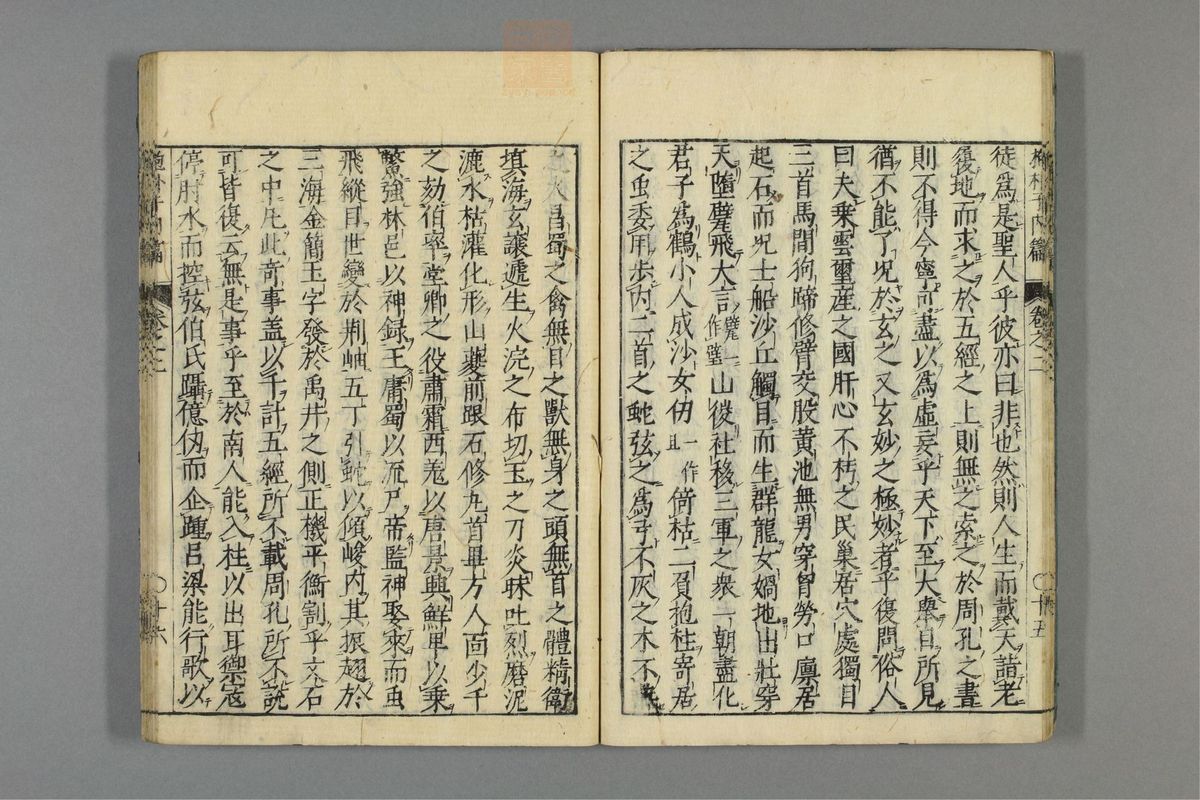 抱朴子内篇 卷之二 〇十五
徒爲是聖人乎彼亦曰非也然則人生而戴天詣老
履地而求之於五經之上則無之索之於周孔之書
則不得今寧計盡以爲虛妄乎天下至大舉目所見
猶不能了況於玄之又玄妙之極妙者乎復問俗人
曰夫乘雲璽産之國肝心不朽之民巢居穴處獨目
三首馬間狗蹄修臂交股黄池無男穿胷勞口廩居
起石而汎士船沙丘觸目而生群龍女媧地出壯穿
天墮甓飛犬言甓一作璧山徙社移三軍之衆一朝盡化
君子爲鶴小人成沙女仞一作且倚枯二負抱柱寄居
之虫委甲步肉二首之蛇弦之爲弓不灰之木不
火昌蜀之禽無目之獸無身之頭無首之體精衛
填海玄讓遞生火浣之布切玉之刀炎昧吐烈磨泥
漉水枯灌化形山夔前跟石修九首畢方人面少千
之劾伯率堂卿之役肅霜西羌以唐景興鮮卑以乗
鱉強林邑以神録王庸蜀以流尸帝監神娶來而虫
飛縱目世變於荆岫五丁引蛇以傾峻肉其振翅於
三海金簡玉字發於禹井之側正機平衡割乎文石
之中凡此奇事盖以千計五經所不載周孔所不説
可皆復云無是事乎至於南人能入柱以出耳禦寇
停肘水而控弦伯氏躡億仞而企踵吕梁能行歌以
抱朴子内篇 卷之二 〇十六